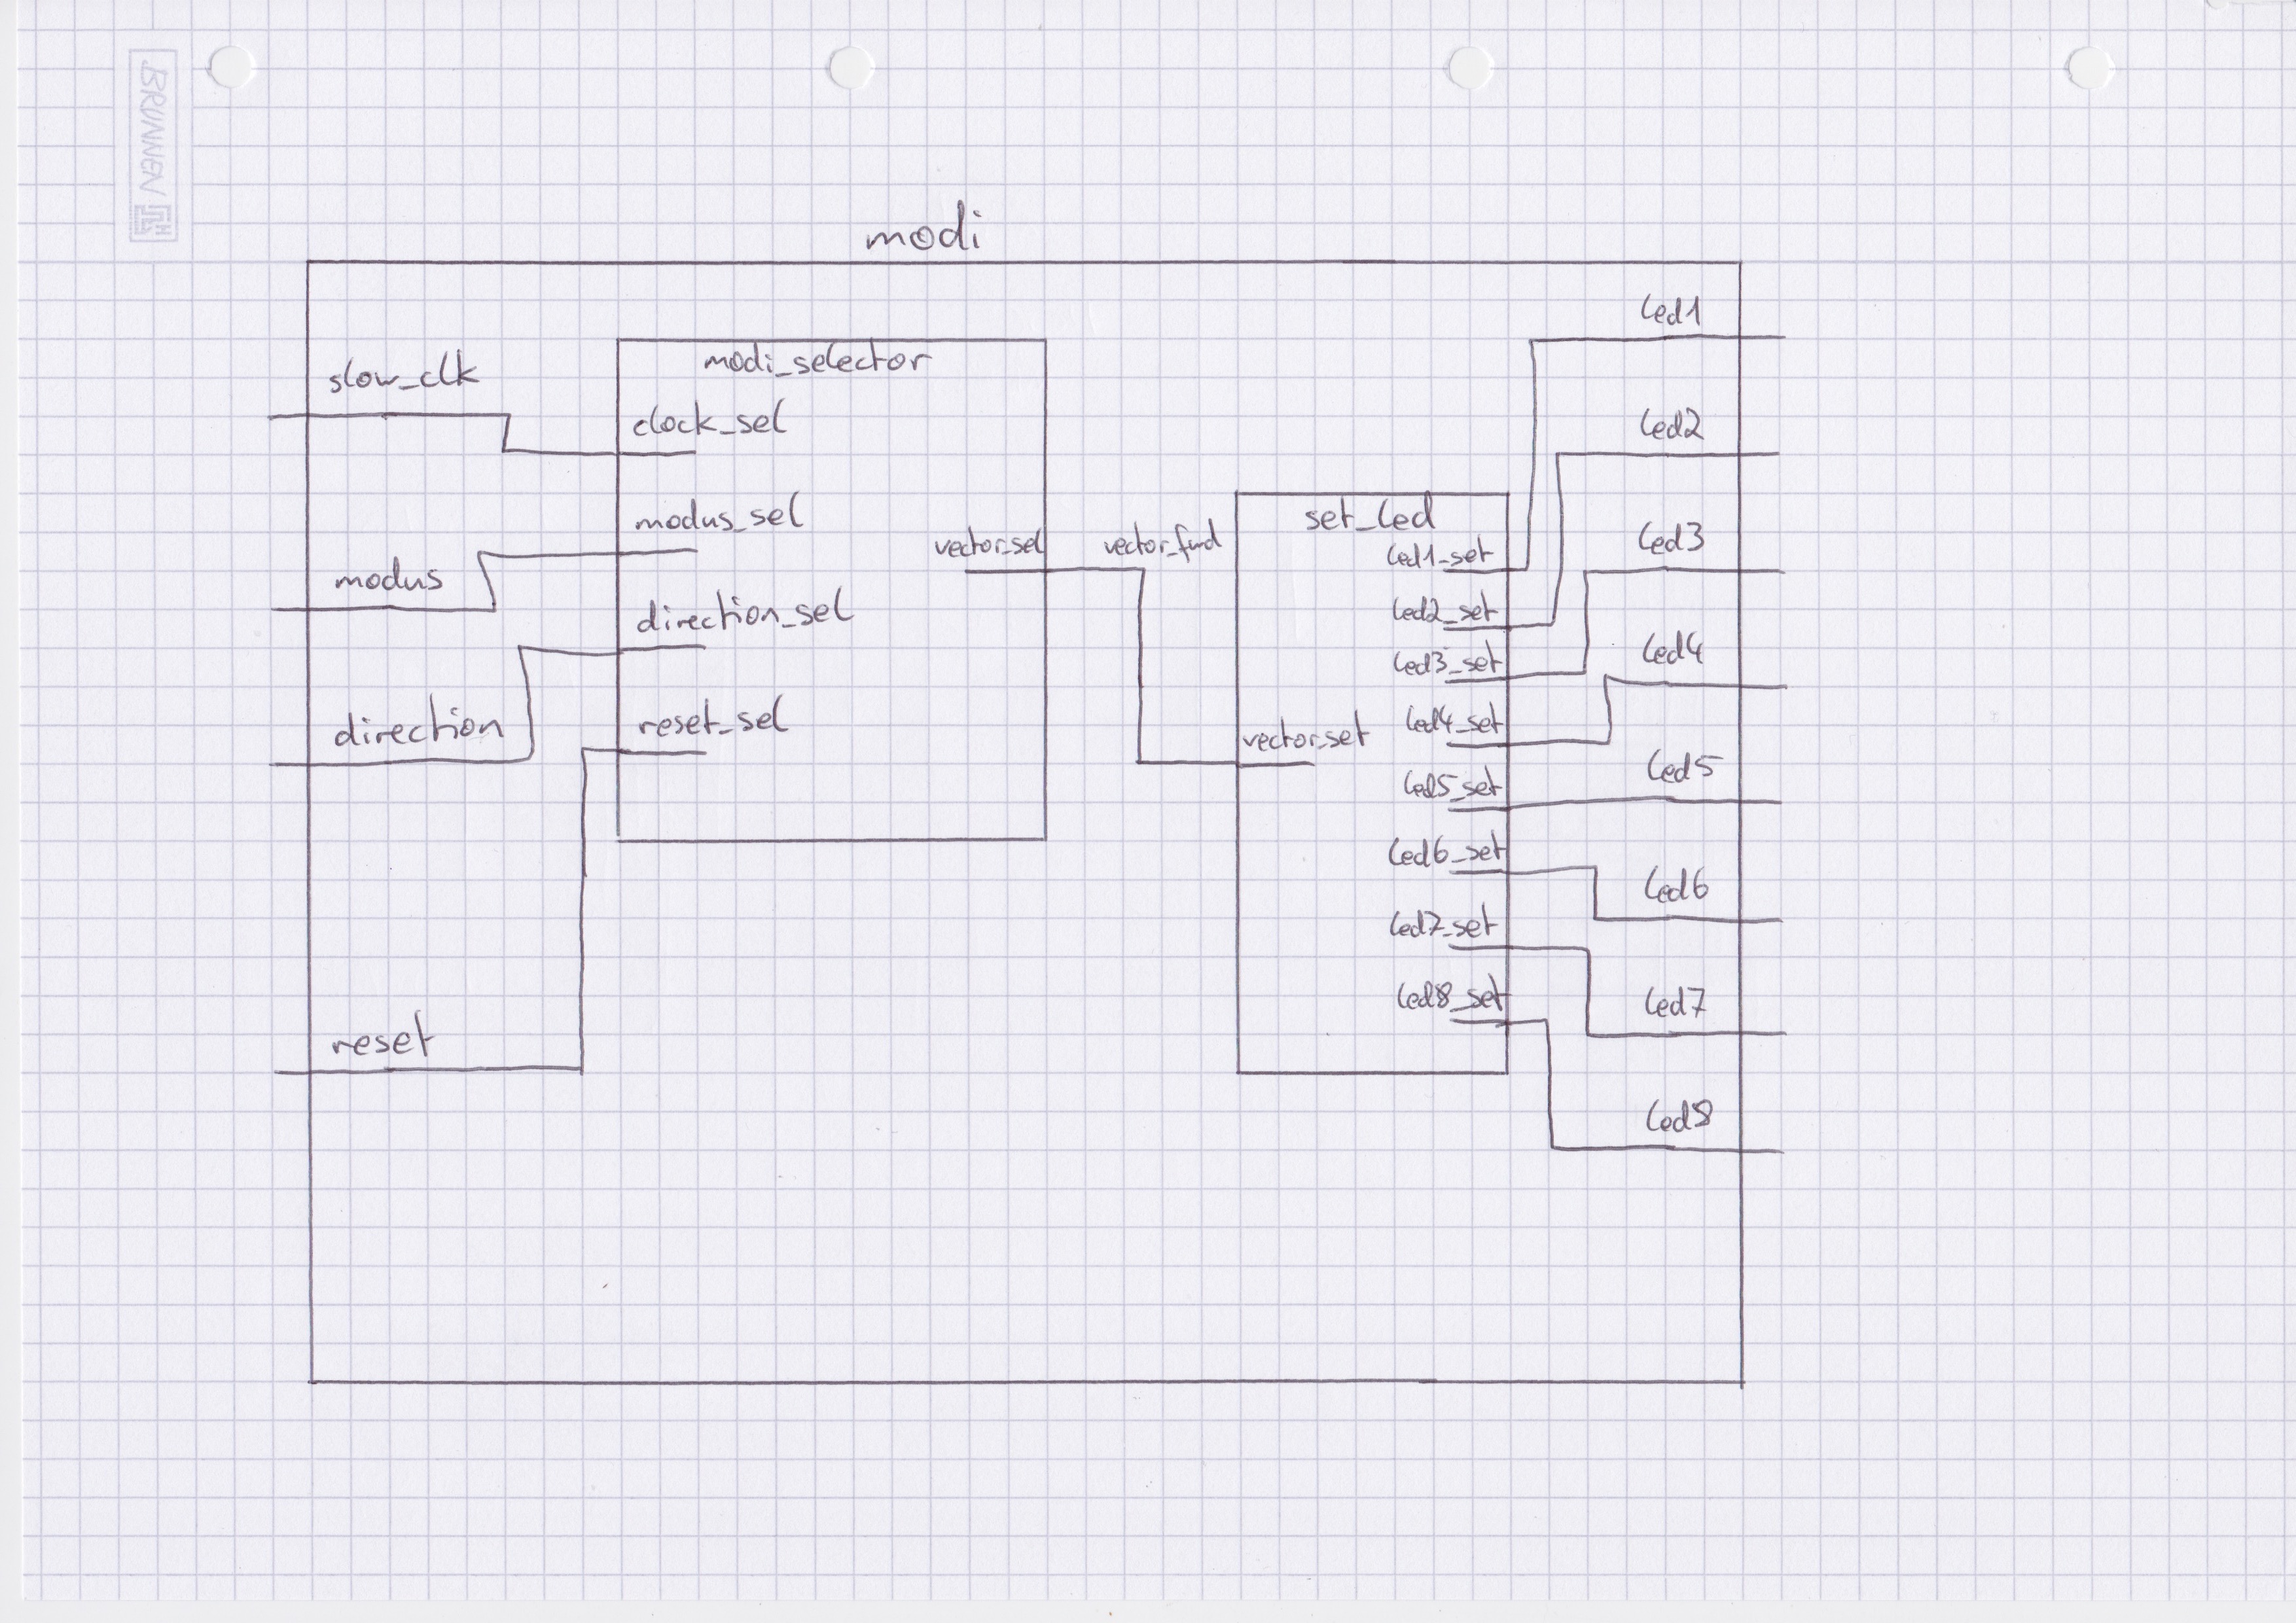 BRUNNEN
modi
slow_clk
modus
direction
reset
modi_selector
clock_sel
modus_sel
direction_sel
reset_sel
vector_sel
vector_fwd
set_led
vector_set
led1_set
led2_set
led3_set
led4_set
led5_set
led6_set
led7_set
led8_set
led1
led2
led3
led4
led5
led6
led7
led8